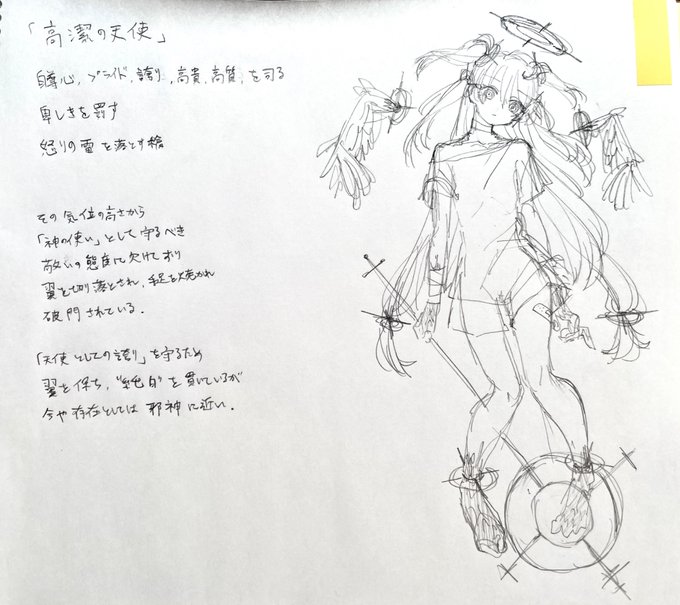 「高潔の天使」
自尊心、プライド、誇り、高貴、高質、を司る
卑しきを罰す
怒りの雷を落とす槍
その気位の高さから
「神の使い」として守るべき
敬いの態度に欠けており
翼を切り落とされ、手足を焼かれ
破門されている.
「天使としての誇り」を守るため
翼を保ち、“純白”を貫いているが
今や存在としては邪神に近い.